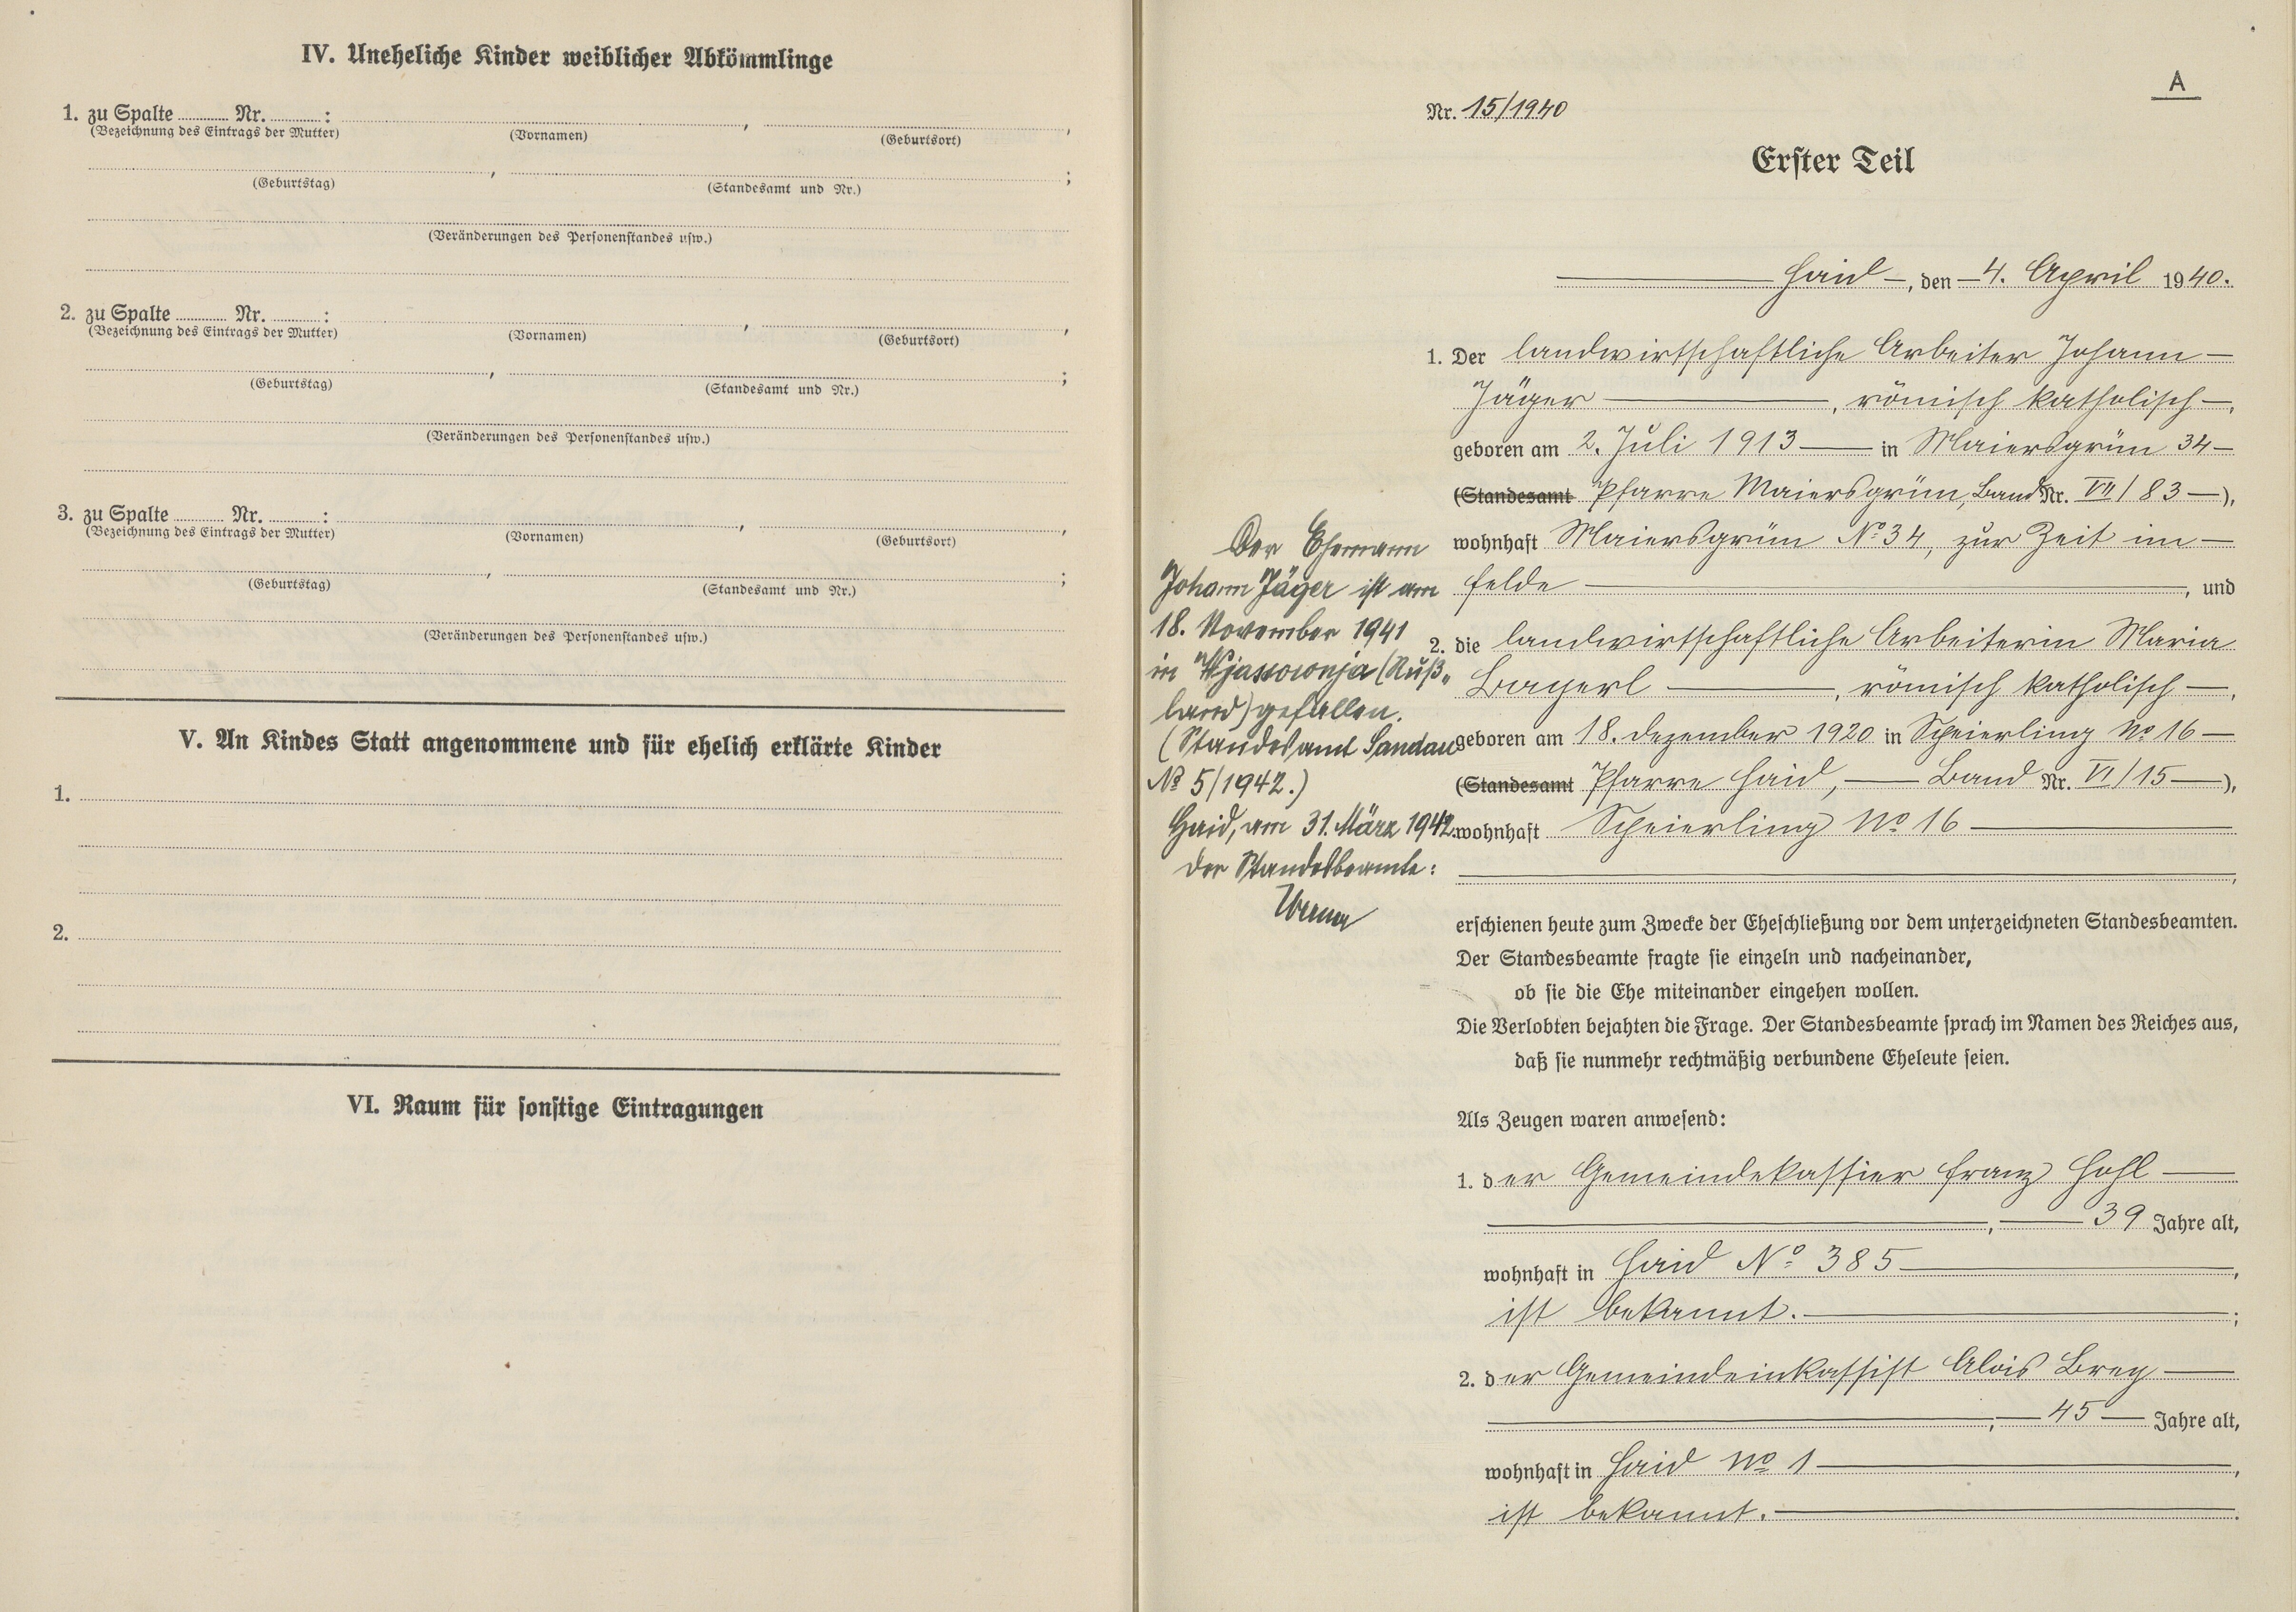 IV. Uneheliche Kinder weiblicher Abkömmlinge
1. zu Spalte ......... Nr. ......... :
(Bezeichnung des Eintrags der Mutter) (Vornamen) (Geburtsort)
(Geburtstag) (Standesamt und Nr.)
(Veränderungen des Personenstandes usw.)
2. zu Spalte ......... Nr. ......... :
(Bezeichnung des Eintrags der Mutter) (Vornamen) (Geburtsort)
(Geburtstag) (Standesamt und Nr.)
(Veränderungen des Personenstandes usw.)
3. zu Spalte ......... Nr. ......... :
(Bezeichnung des Eintrags der Mutter) (Vornamen) (Geburtsort)
(Geburtstag) (Standesamt und Nr.)
(Veränderungen des Personenstandes usw.)
V. An Kindes Statt angenommene und für ehelich erklärte Kinder
1.
2.
VI. Raum für sonstige Eintragungen
A
Nr. 15/1940
Erster Teil
Haid, den 4. April 1940.
1. Der landwirtschaftliche Arbeiter Johann
Jäger, römisch katholisch,
geboren am 2. Juli 1913 in Maiersgrün 34
(Standesamt Pfarre Maiersgrün, Band Nr. VII/83),
wohnhaft Maiersgrün No 34, zur Zeit im
Felde, und
2. die landwirtschaftliche Arbeiterin Maria
Bayerl, römisch katholisch,
geboren am 18. Dezember 1920 in Speierling No 16
(Standesamt Pfarre Haid, Band Nr. VI/15),
wohnhaft Speierling No 16
Der Ehemann
Johann Jäger ist am
18. November 1941
in Wjassownja (Ruß-
land) gefallen.
(Standesamt Sandau
No 5/1942.)
Haid, am 31. März 1942.
Der Standesbeamte:
erschienen heute zum Zwecke der Eheschließung vor dem unterzeichneten Standesbeamten.
Der Standesbeamte fragte sie einzeln und nacheinander,
ob sie die Ehe miteinander eingehen wollen.
Die Verlobten bejahten die Frage. Der Standesbeamte sprach im Namen des Reiches aus,
daß sie nunmehr rechtmäßig verbundene Eheleute seien.
Als Zeugen waren anwesend:
1. der Gemeindekassier Franz Hohl
39 Jahre alt,
wohnhaft in Haid No 385,
ist bekannt. ;
2. der Gemeindeinkassist Alois Brey
45 Jahre alt,
wohnhaft in Haid No 1,
ist bekannt.